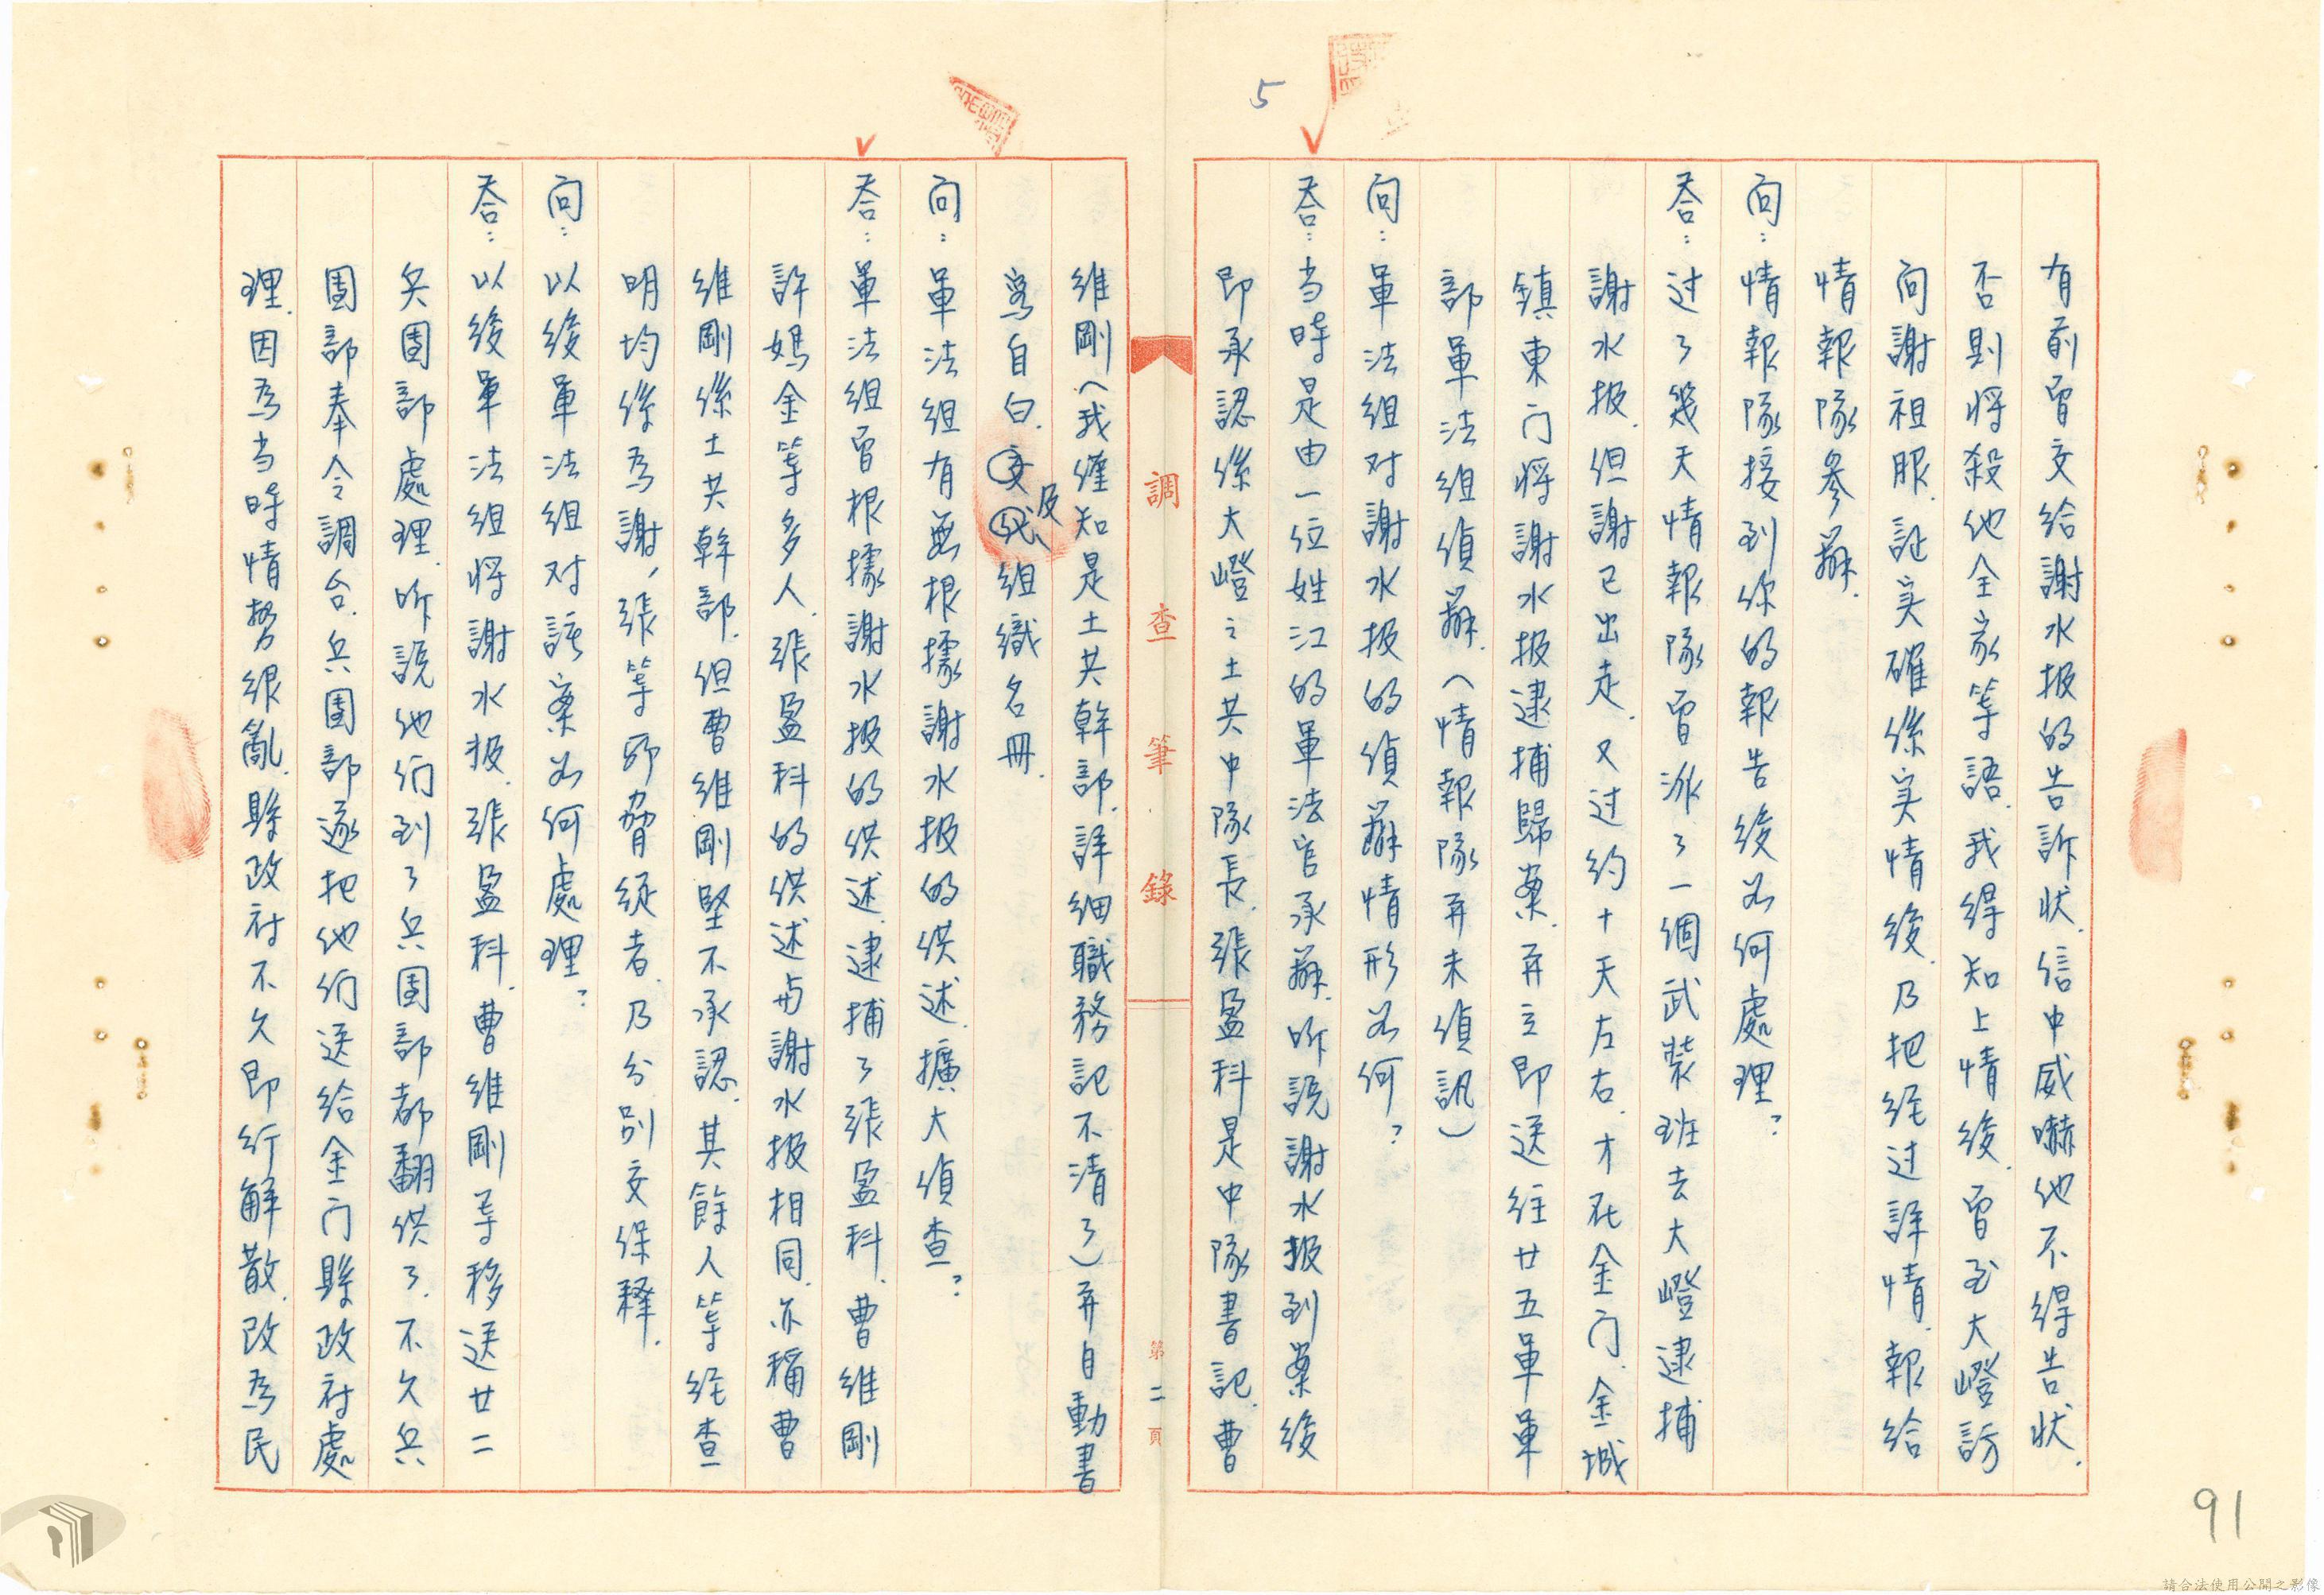 5
有前曾交給謝水报的告訴状.信中威嚇他不得告状.
否則将殺他全家等語.我得知上情後.曾至大嶝訪
问謝祖服.証实確係实情後.乃把经过詳情.報給
情報隊參辦.
问:情報隊接到你的報告後如何處理?
答:过了幾天情報隊曾派了一個武裝班去大嶝逮捕
謝水报.但謝已出走.又过約十天左右.才在金门.金城
鎮東门将謝水报逮捕歸案.并立即送往廿五軍軍
部軍法組偵辦.(情報隊并未偵訊)
问:軍法組对謝水报的偵辦情形如何?
答:当時是由一位姓江的軍法官承辦.听説謝水报到案後
即承認係大嶝之土共中隊長.張盈科是中隊書記.曹
調查筆錄
第二頁
維剛(我僅知是土共幹部.詳細職務記不清了)并自動書
寫自白.及組織名冊.
问:軍法組有無根據謝水报的供述.擴大偵查?
答:軍法組曾根據謝水报的供述.逮捕了張盈科.曹維剛
許媽金等多人.張盈科的供述与謝水报相同.亦稱曹
維剛係土共幹部.但曹維剛堅不承認.其餘人等经查
明均係為謝,張等所脅從者.乃分別交保釋.
问:以後軍法組对該案如何處理?
答:以後軍法組将謝水报.張盈科.曹維剛等移送廿二
兵團部處理.听説他们到了兵團部都翻供了.不久兵
團部奉令調台.兵團部遂把他们送給金门縣政府處
理.因為当時情势很亂.縣政府不久即行解散.改為民
91
請合法使用公開之影像